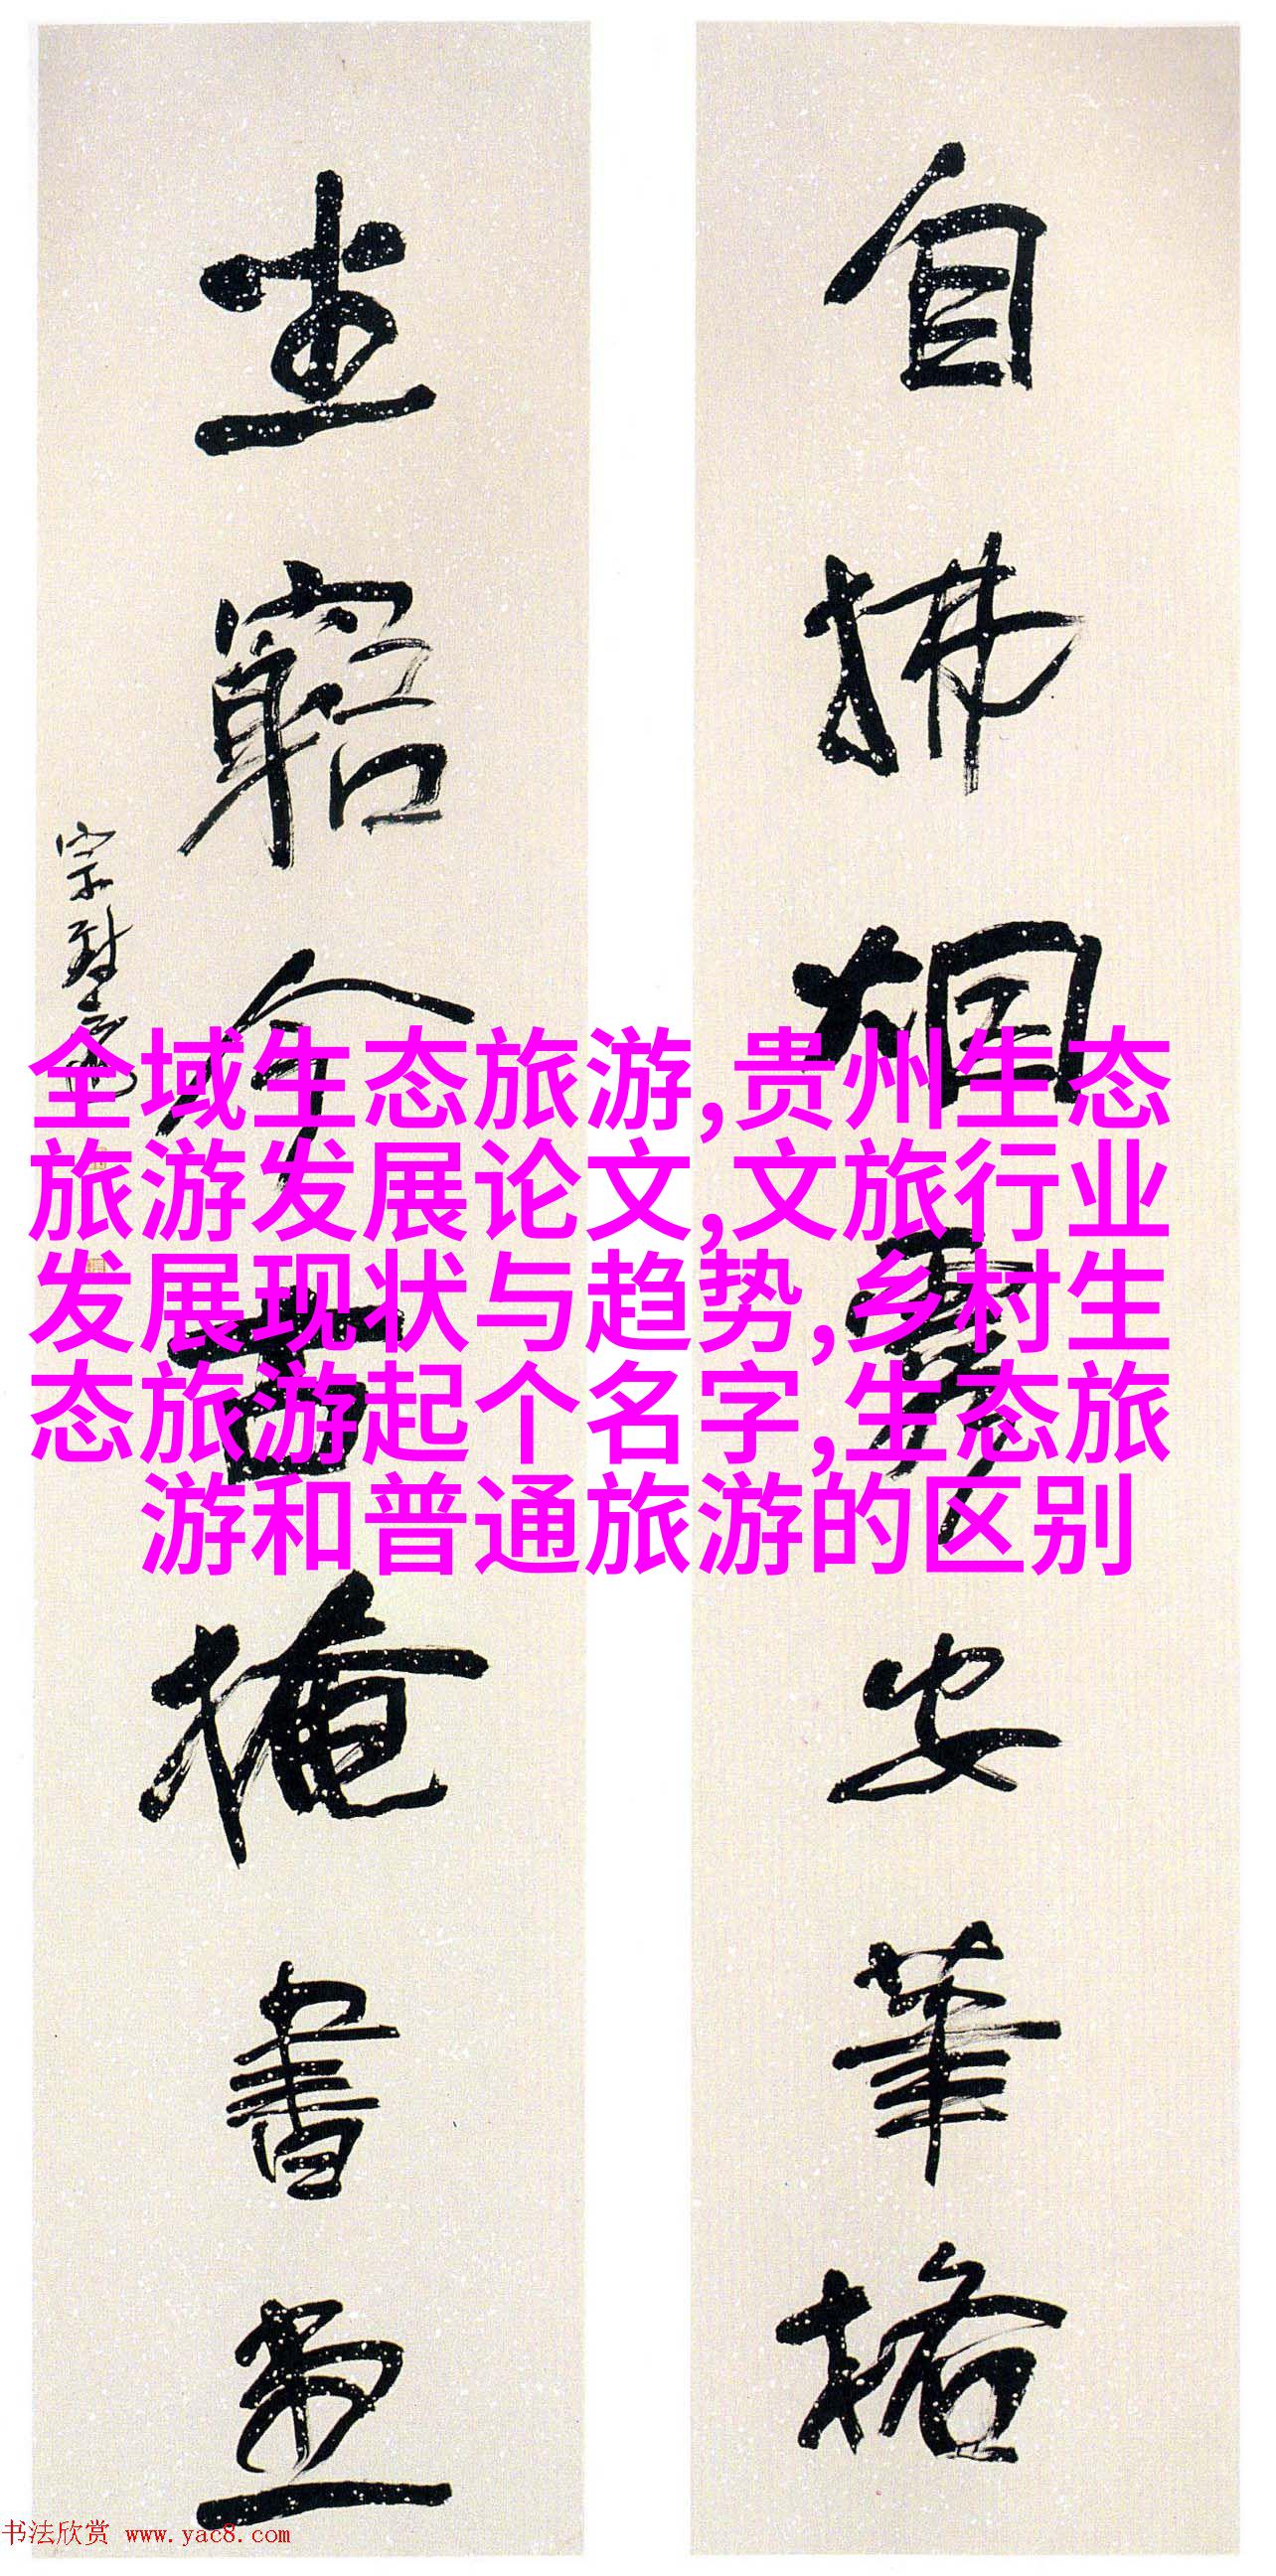 自拂烟霞安笔格
坐窮今古掩書畫
全域生态旅游,贵州生态
旅游发展论文,文旅行业
发展现状与趋势,乡村生
态旅游起个名字,生态旅
游和普通旅游的区别
书法欣赏 www.yac8.com